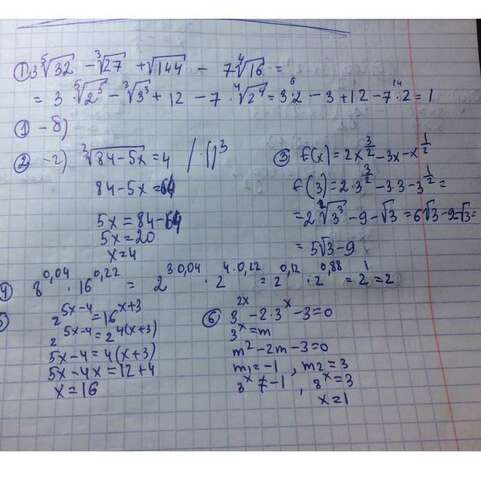 ① 3⁵√32 − ³√27 + √144 − 7⁴√16 =
= 3 · ⁵√2⁵ − ³√3³ + 12 − 7 · ⁴√2⁴ = 3·2 − 3 + 12 − 7·2 = 1
6 14
① − б)
② − г) ³√84−5x = 4 / ()³
84−5x = 64
5x = 84−64
5x = 20
x = 4
③ f(x) = 2x^(3/2) − 3x − x^(1/2)
f(3) = 2·3^(3/2) − 3·3 − 3^(1/2) =
= 2 ²√3³ − 9 − √3 = 6√3 − 9 − √3 =
= 5√3 − 9
4 8^0,04 · 16^0,22 = 2^(3·0,04) · 2^(4·0,22) = 2^0,12 · 2^0,88 = 2^1 = 2
2^(5x−4) = 16^(x+3)
2^(5x−4) = 2^(4(x+3))
5x−4 = 4(x+3)
5x−4x = 12+4
x = 16
⑥ 3^(2x) − 2·3^x − 3 = 0
3^x = m
m² − 2m − 3 = 0
m₁ = −1, m₂ = 3
3^x ≠ −1, 3^x = 3
x = 1